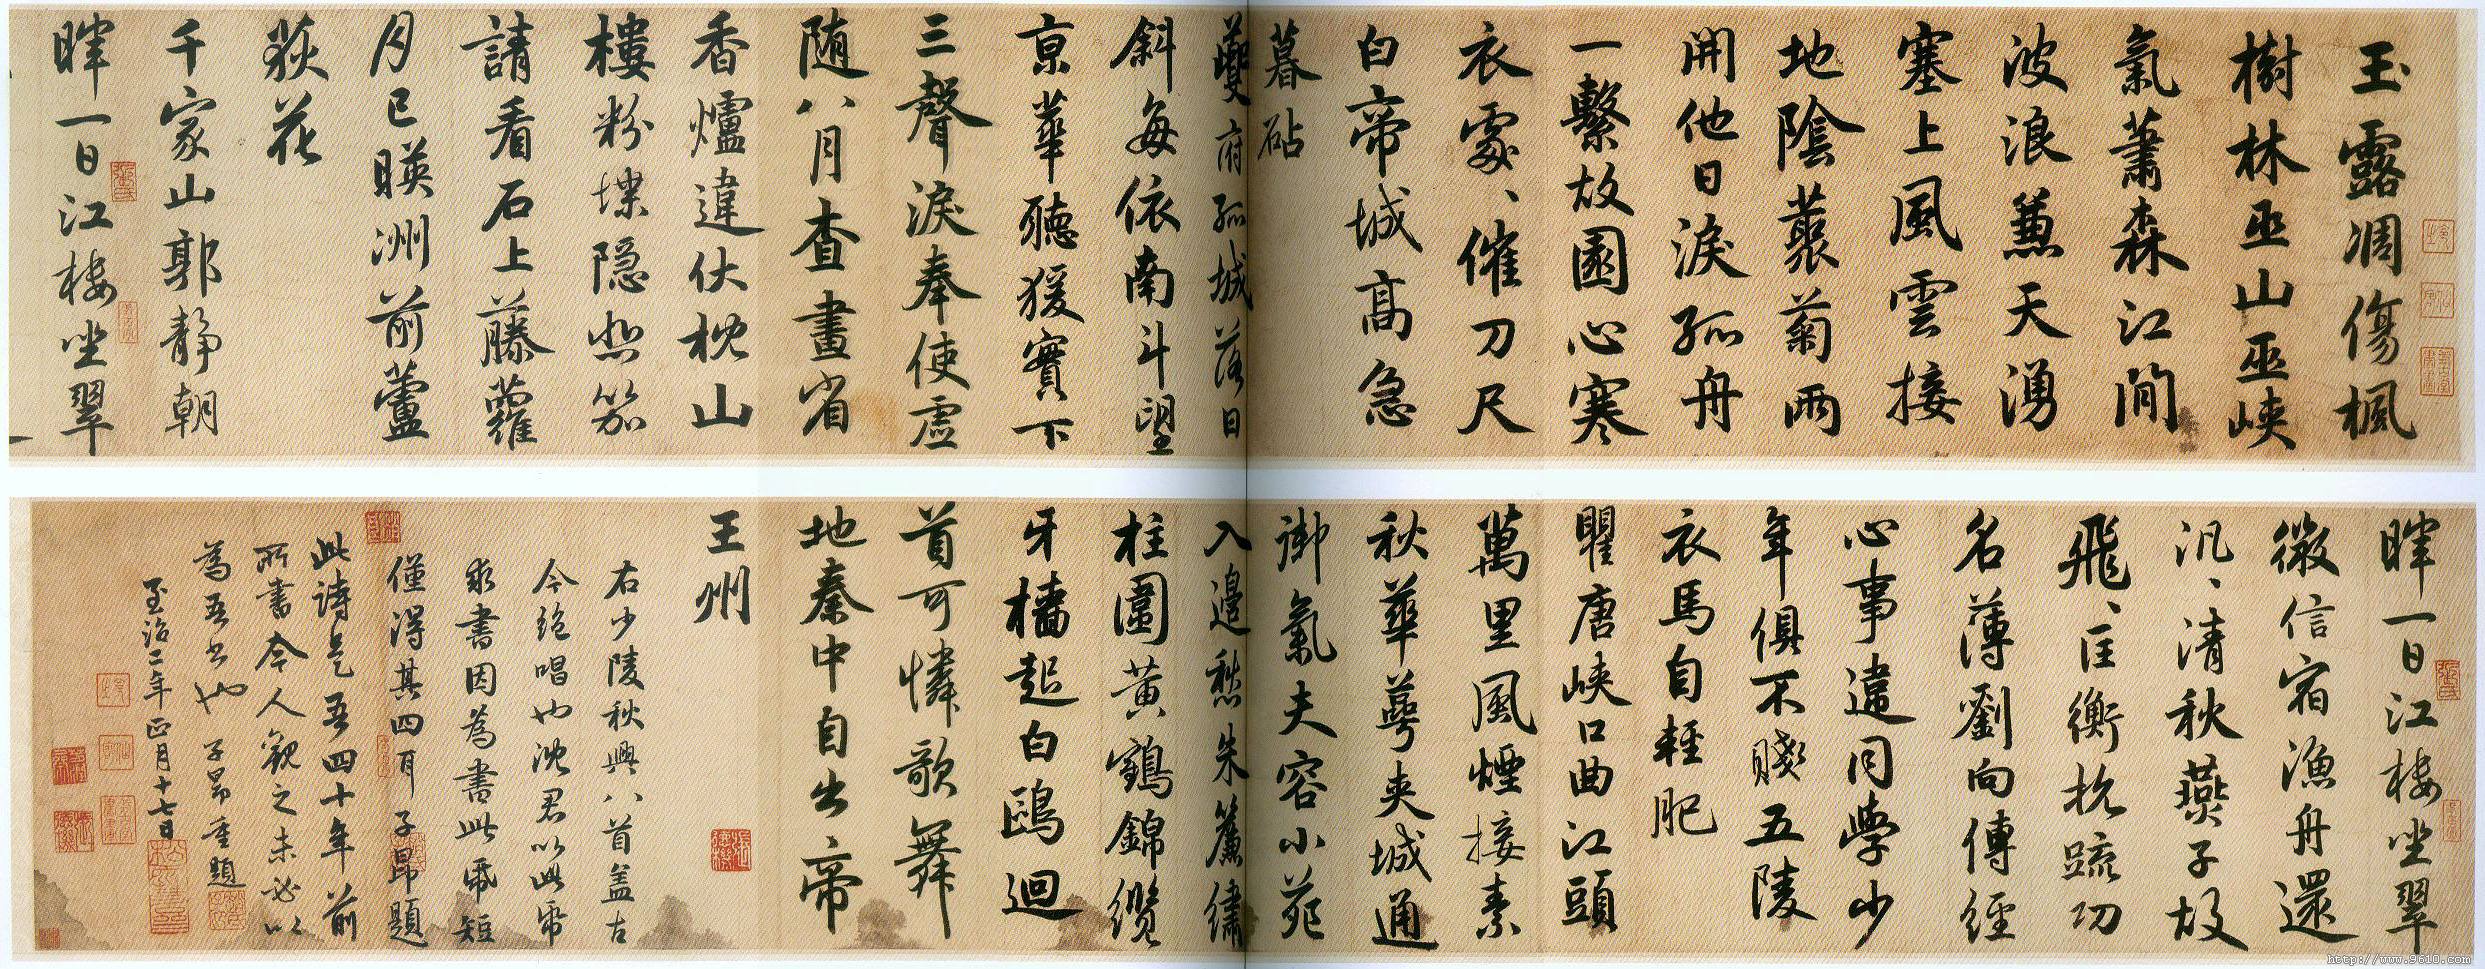 玉露凋傷楓
樹林巫山巫峽
氣蕭森江間
波浪兼天湧
塞上風雲接
地陰藂菊兩
開他日淚孤舟
一繫故園心寒
衣處、催刀尺
白帝城高急
暮砧
夔府孤城落日
斜每依南斗望
京華聽猿實下
三聲淚奉使虛
隨八月查畫省
香爐違伏枕山
樓粉堞隱悲笳
請看石上藤蘿
月已暎洲前蘆
荻花
千家山郭靜朝
暉一日江樓坐翠
暉一日江樓坐翠
微信宿漁舟還
汎、清秋燕子故
飛、匡衡抗疏功
名薄劉向傳經
心事違同學少
年俱不賤五陵
衣馬自輕肥
瞿唐峽口曲江頭
萬里風煙接素
秋華萼夾城通
御氣夫容小苑
入邊愁朱簾繡
柱圍黃鶴錦纜
牙檣起白鷗迴
首可憐歌舞
地秦中自古帝
王州
右少陵秋興八首蓋古
今絕唱也沈君以此紙
求書因為書此紙短
僅得其四耳子昂題
此詩是吾四十年前
所書今人觀之未必以
為吾書也子昂重題
至治二年正月十七日
http://www.9610.com